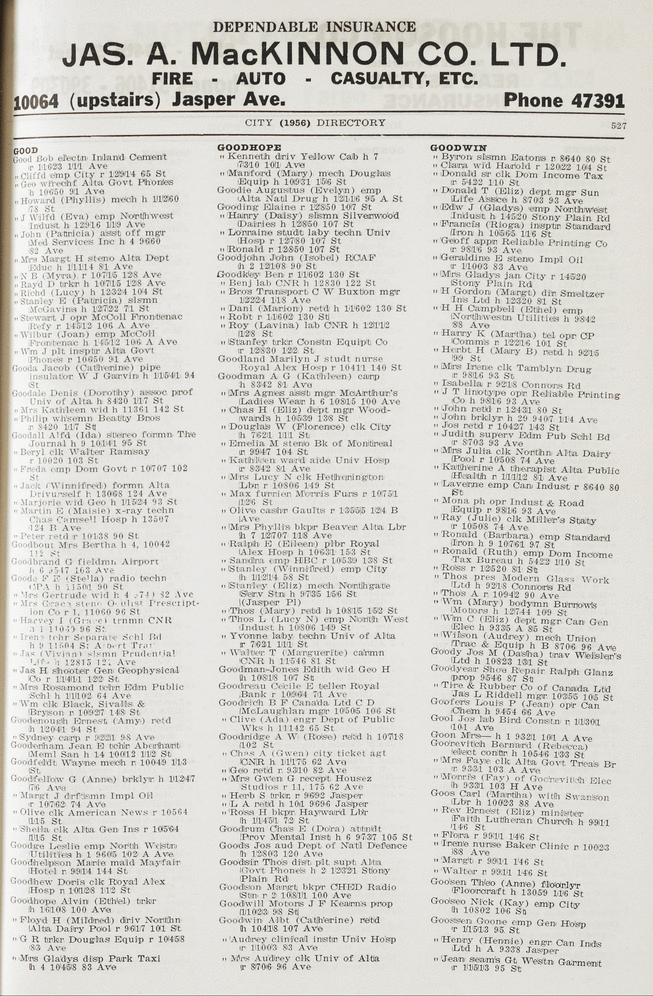 DEPENDABLE INSURANCE
JAS. A. MacKINNON CO. LTD.
FIRE - AUTO - CASUALTY, ETC.
10064 (upstairs) Jasper Ave. Phone 47391
CITY (1956) DIRECTORY 527
GOOD
Good Bob electn Inland Cement
r 11623 111 Ave
" Cliffd emp City r 12914 65 St
" Geo wirechf Alta Govt Phones
h 10650 91 Ave
" Howard (Phyllis) mech h 11260
78 St
" J Wilfd (Eva) emp Northwest
Indust h 12916 119 Ave
" John (Patricia) asst off mgr
Med Services Inc h 4 9660
82 Ave
" Mrs Margt H steno Alta Dept
Educ h 11114 81 Ave
" N B (Myra) r 10715 128 Ave
" Rayd D trkr h 10715 128 Ave
" Richd (Lucy) h 12324 104 St
" Stanley E (Patricia) slsmn
McGavins h 12722 71 St
" Stewart J opr McColl Frontenac
Refy r 14512 106 A Ave
" Wilbur (Joan) emp McColl
Frontenac h 14512 106 A Ave
" Wm J plt insptr Alta Govt
Phones r 10650 91 Ave
Gooda Jacob (Catherine) pipe
insulator W J Garvin h 11541 94
St
Goodale Denis (Dorothy) assoc prof
Univ of Alta h 8420 117 St
" Mrs Kathleen wid h 11361 142 St
" Philip whsemn Beatty Bros
r 8420 117 St
Goodall Alfd (Ida) stereo formn The
Journal h 9 10141 95 St
" Beryl clk Walter Ramsay
r 10020 103 St
" Freda emp Dom Govt r 10707 102
St
" Jack (Winnifred) formn Alta
Driv urself h 13068 124 Ave
" Marjorie wid Geo h 11524 93 St
" Martin E (Maisie) x-ray techn
Chas Camsell Hosp h 13507
124 B Ave
" Peter retd r 10138 90 St
Goodbout Mrs Bertha h 4, 10042
112 St
Goodbrand G fieldmn Airport
h 6 9547 163 Ave
Goode F E (Stella) radio techn
CPA h 11501 90 St
" Mrs Gertrude wid h 4 82 Ave
" Mrs Grace steno Oculist Prescript-
ion Co r 1, 11060 96 St
" Harvey I (Grace) trnmn CNR
96 St
" Irene tchr Separate Schl Bd
h 9 11504 St Albert Trail
" Jas (Vivian) slsmn Prudential
h 12815 12 Ave
" Jas H shooter Gen Geophysical
Co r 11411 122 St
" Mrs Rosamond tchr Edm Public
Schl h 11102 64 Ave
" Wm clk Black, Sivalls &
Bryson r 10927 148 St
Goodenough Ernest (Amy) retd
h 12041 94 St
" Sydney carp r 9221 98 Ave
Gooderham Jean E tchr Aberhart
Meml San h 14 10012 112 St
Goodfeldt Wayne mech r 10049 113
St
Goodfellow G (Anne) brklyr h 11247
76 Ave
" Margt J drftsmn Impl Oil
r 10762 74 Ave
" Olive clk American News r 10564
115 St
" Sheila clk Alta Gen Ins r 10564
115 St
Goodge Leslie emp North Westn
Utilities h 1 9605 102 A Ave
Goodhelpson Marie maid Mayfair
Hotel r 9914 144 St
Goodhew Doris clk Royal Alex
Hosp r 10128 112 St
Goodhope Alvin (Ethel) trkr
h 16108 100 Ave
" Floyd H (Mildred) driv Northn
Alta Dairy Pool r 9617 101 St
" G R trkr Douglas Equip r 10458
83 Ave
" Mrs Gladys disp Park Taxi
h 4 10458 83 Ave
GOODHOPE
" Kenneth driv Yellow Cab h 7
7310 101 Ave
" Manford (Mary) mech Douglas
Equip h 10931 156 St
Goodie Augustus (Evelyn) emp
Alta Natl Drug h 12116 95 A St
Gooding Elaine r 12850 107 St
" Harry (Daisy) slsmn Silverwood
Dairies h 12850 107 St
" Lorraine studt laby techn Univ
Hosp r 12780 107 St
" Ronald r 12850 107 St
Goodjohn John (Isobel) RCAF
h 2 12108 90 St
Goodkey Ben r 11602 130 St
" Benj lab CNR h 12830 122 St
" Bros Transport C W Buxton mgr
12224 118 Ave
" Danl (Marion) retd h 11602 130 St
" Robt r 11602 130 St
" Roy (Lavina) lab CNR h 12112
128 St
" Stanley trkr Constn Equipt Co
r 12830 122 St
Goodland Marilyn J studt nurse
Royal Alex Hosp r 10411 140 St
Goodman A G (Kathleen) carp
h 8342 81 Ave
" Mrs Agnes asst mgr McArthur's
Ladies Wear h 6 10815 100 Ave
" Chas H (Eliz) dept mgr Wood-
wards h 10539 138 St
" Douglas W (Florence) clk City
h 7621 111 St
" Emelia M steno Bk of Montreal
r 9947 104 St
" Kathleen ward aide Univ Hosp
r 8342 81 Ave
" Mrs Lucy N clk Hetherington
Lbr r 10806 149 St
" Max furrier Morris Furs r 10751
126 St
" Olive cashr Gaults r 13555 124 B
Ave
" Mrs Phyllis bkpr Beaver Alta Lbr
h 7 12707 118 Ave
" Ralph E (Eileen) plbr Royal
Alex Hosp h 10631 153 St
" Sandra emp HBC r 10539 138 St
" Stanley (Winnifred) emp City
h 11214 58 St
" Stanley (Eliz) mech Northgate
Serv Stn h 9735 156 St
(Jasper Pl)
" Thos (Mary) retd h 10815 152 St
" Thos L (Lucy N) emp North West
Indust h 10806 149 St
" Yvonne laby techn Univ of Alta
r 7621 111 St
" Walter T (Marguerite) carmn
CNR h 11546 81 St
Goodman-Jones Edith wid Geo H
h 10818 107 St
Goodreau Cecile E teller Royal
Bank r 10964 71 Ave
Goodrich B F Canada Ltd C D
McLaughlan mgr 10505 106 St
" Clive (Ada) engr Dept of Public
Wks h 11142 65 St
Goodridge A W (Rose) retd h 10718
102 St
" Chas A (Gwen) city ticket agt
CNR h 11175 62 Ave
" Geo retd r 9310 82 Ave
" Mrs Gwen G recept Housez
Studios r 11, 175 62 Ave
" Herb S trkr r 9692 Jasper
" L A retd h 101 9696 Jasper
" Ross H bkpr Hayward Lbr
h 11451 72 St
Goodrum Chas E (Dora) attndt
Prov Mental Inst h 6 9737 105 St
Goods Jos aud Dept of Natl Defence
h 12803 120 Ave
Goodsir Thos dist plt supt Alta
Govt Phones h 2 12321 Stony
Plain Rd
Goodson Margt bkpr CHED Radio
Stn r 2 10811 100 Ave
Goodwill Motors J F Kearns prop
11023 98 St
Goodwin Albt (Catherine) retd
h 10418 107 Ave
" Audrey clinical instr Univ Hosp
r 11003 83 Ave
" Mrs Audrey clk Univ of Alta
r 8706 96 Ave
GOODWIN
" Byron slsmn Eatons r 8640 80 St
" Clara wid Harold r 12022 104 St
" Donald sr clk Dom Income Tax
r 5422 110 St
" Donald T (Eliz) dept mgr Sun
Life Assce h 8703 93 Ave
" Edw J (Gladys) emp Northwest
Indust h 14520 Stony Plain Rd
" Francis (Rioga) insptr Standard
Iron h 10565 116 St
" Geoff appr Reliable Printing Co
r 9816 93 St
" Geraldine E steno Impl Oil
r 11003 83 Ave
" Mrs Gladys jan City r 14520
Stony Plain Rd
" H Gordon (Margt) dir Smeltzer
Ins Ltd h 12320 81 St
" H H Campbell (Ethel) emp
Northwestn Utilities h 9842
88 Ave
" Harry K (Martha) tel opr CP
Comm's r 12216 101 St
" Herbt H (Mary B) retd h 9215
99 St
" Mrs Irene clk Tamblyn Drug
r 9816 93 St
" Isabella r 9218 Connors Rd
" J T linotype opr Reliable Printing
Co h 9816 93 Ave
" John retd r 12431 80 St
" John brklyr h 29 9407 114 Ave
" Jos retd r 10427 143 St
" Judith superv Edm Pub Schl Bd
r 8703 93 Ave
" Mrs Julia clk Northn Alta Dairy
Pool r 10508 74 Ave
" Katherine A therapist Alta Public
Health r 11112 81 Ave
" Laverne emp Can Indust r 8640 80
St
" Mona ph opr Indust & Road
Equip r 9816 93 Ave
" Ray (Julie) clk Miller's Staty
r 10508 74 Ave
" Ronald (Barbara) emp Standard
Iron h 9 10761 97 St
" Ronald (Ruth) emp Dom Income
Tax Bureau h 5422 110 St
" Ross r 12520 81 St
" Thos pres Modern Glass Work
Ltd h 9218 Connors Rd
" Thos A r 10942 90 Ave
" Wm (Mary) bodymn Burrows
Motors h 12744 109 St
" Wm C (Eliz) dept mgr Can Gen
Elec h 9335 A 85 St
" Wilson (Audrey) mech Union
Trac & Equip h B 8706 96 Ave
Goody Jos M (Dasha) trav Weisler's
Ltd h 10822 131 St
Goodyear Shoe Repair Ralph Glanz
prop 9546 87 St
" Tire & Rubber Co of Canada Ltd
Jas L Riddell mgr 10355 105 St
Goofers Louis P (Jean) opr Can
Chem h 9454 66 Ave
Gool Jos lab Bird Constn r 11301
101 Ave
Goon Mrs— h 1 9321 101 A Ave
Goorevitch Bernard (Rebecca)
elect contr h 10546 133 St
" Mrs Faye clk Alta Govt Treas Br
r 9331 103 A Ave
" Morris (Fay) of Goorevitch Elec
h 9331 103 H Ave
Goos Carl (Martha) with Swanson
Lbr h 10023 88 Ave
" Rev Ernest (Eliz) minister
Faith Lutheran Church h 9911
146 St
" Flora r 9911 146 St
" Irene nurse Baker Clinic r 10023
88 Ave
" Margt r 9911 146 St
" Walter r 9911 146 St
Goosen Theo (Anne) floorlyr
Floorcraft h 13059 116 St
Gooseo Nick (Kay) emp City
h 10802 106 St
Goossen Goone emp Gen Hosp
r 11513 95 St
" Henry (Hennie) engr Can Inds
Ltd h A 9338 Jasper
" Jean seam's Gt Westn Garment
r 11513 95 St